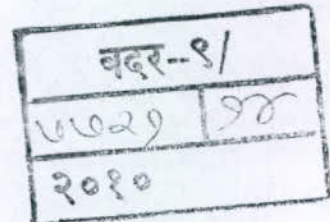 वदर--९/
५७२१ १४
२०१०